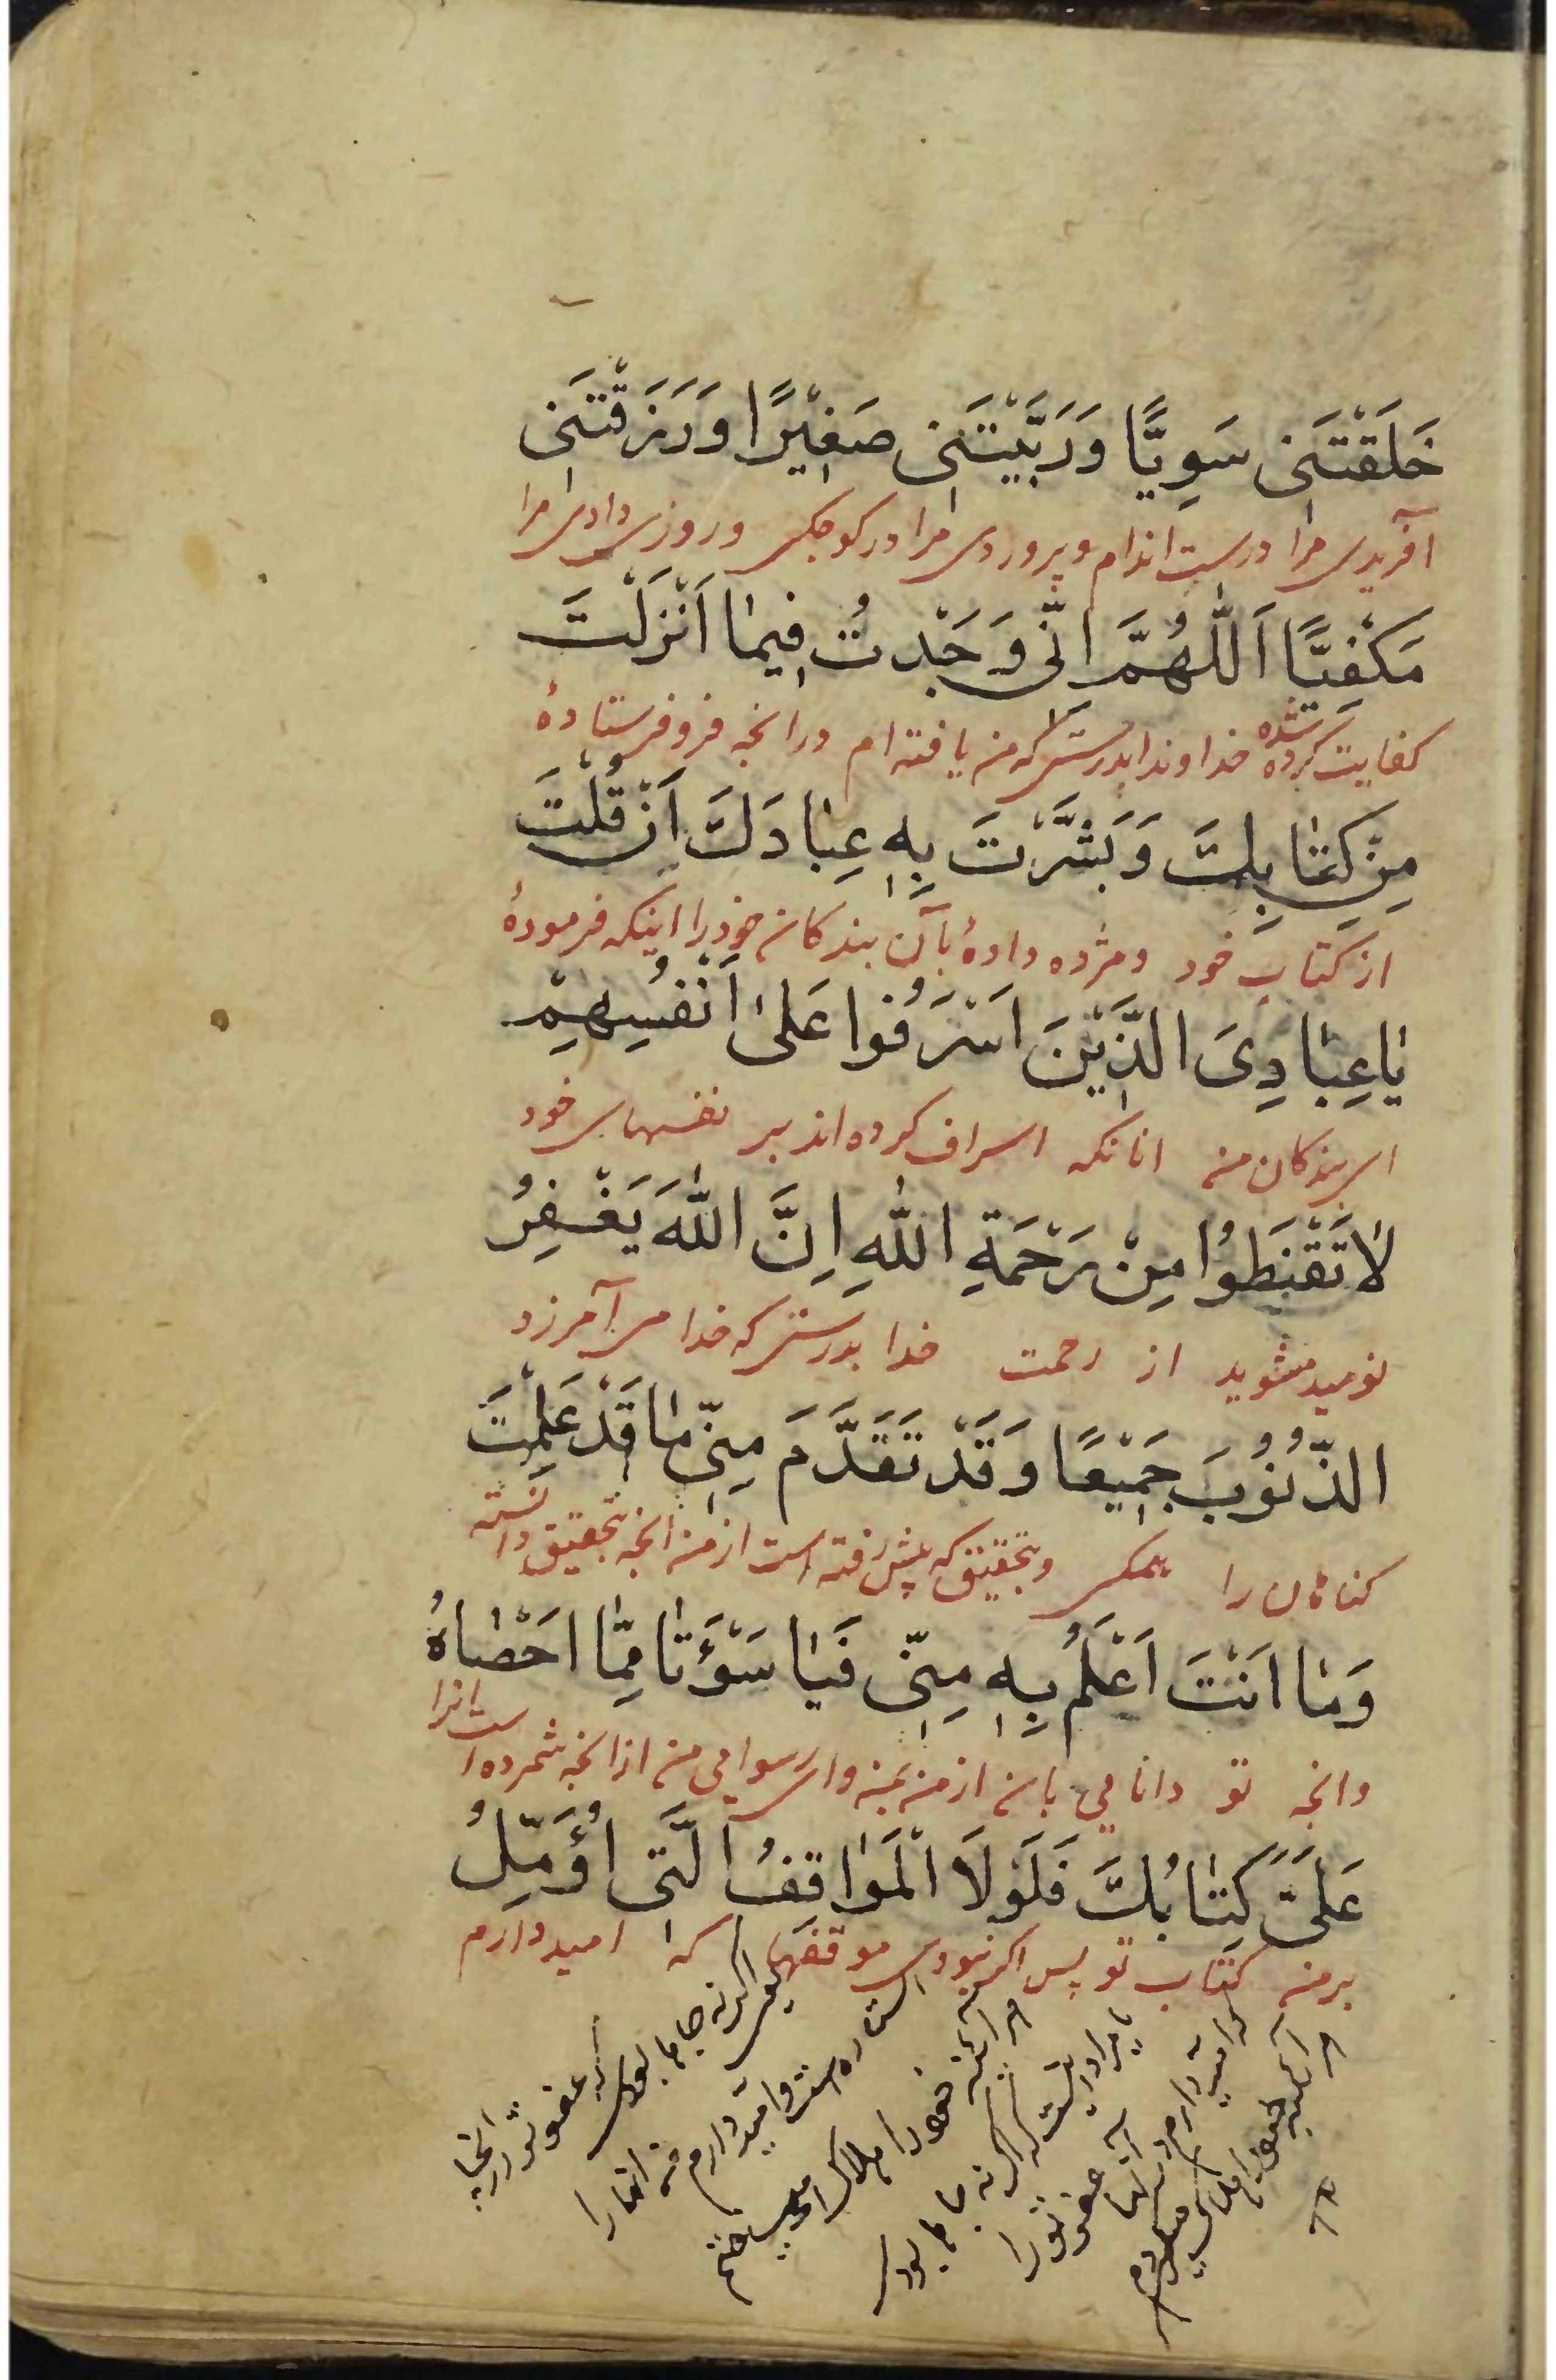 خَلَقْتَنی سَوِیًّا وَرَبَّیْتَنی صَغیْرًا وَرَزَقْتَنی
آفریدی مرا درست اندام و پروردی مرا در کوچکی و روزی دادی مرا
مَکْفِیًّا اَللّٰهُمَّ اِنّی وَجَدْتُ فِیمٰا اَنْزَلْتَ
کفایت کرده شده خداوندا بدرستی که من یافته ام در انچه فرو فرستادهٔ
مِنْ کِتٰابِكَ وَبَشَّرْتَ بِهِ عِبٰادَكَ اَنْ قُلْتَ
از کتاب خود و مژده دادهٔ بآن بندکان خود را اینکه فرمودهٔ
یٰا عِبٰادِیَ الَّذیْنَ اَسْرَفُوا عَلیٰ اَنْفُسِهِمْ
ای بندکان من انانکه اسراف کرده اند بر نفسهای خود
لٰا تَقْنَطُوْا مِنْ رَحْمَةِ اللّٰهِ اِنَّ اللّٰهَ یَغْفِرُ
نومید مشوید از رحمت خدا بدرستی که خدا می آمرزد
الذُّنُوْبَ جَمیْعًا وَقَدْ تَقَدَّمَ مِنّی مٰا قَدْ عَلِمْتَ
کناهان را همکی و بتحقیق که پیش رفته است از من انچه بتحقیق دانسته
وَمٰا اَنْتَ اَعْلَمُ بِهِ مِنّی فَیٰا سَوْأَتٰا مِمّٰا اَحْصٰاهُ
و انچه تو دانایی بان از من پس وای رسوایی من از انچه شمرده است انرا
عَلَیَّ کِتٰابُكَ فَلَوْلَا الْمَوٰاقِفُ الَّتی اُؤَمِّلُ
بر من کتاب تو پس اکر نبودی موقفها که امیدوارم